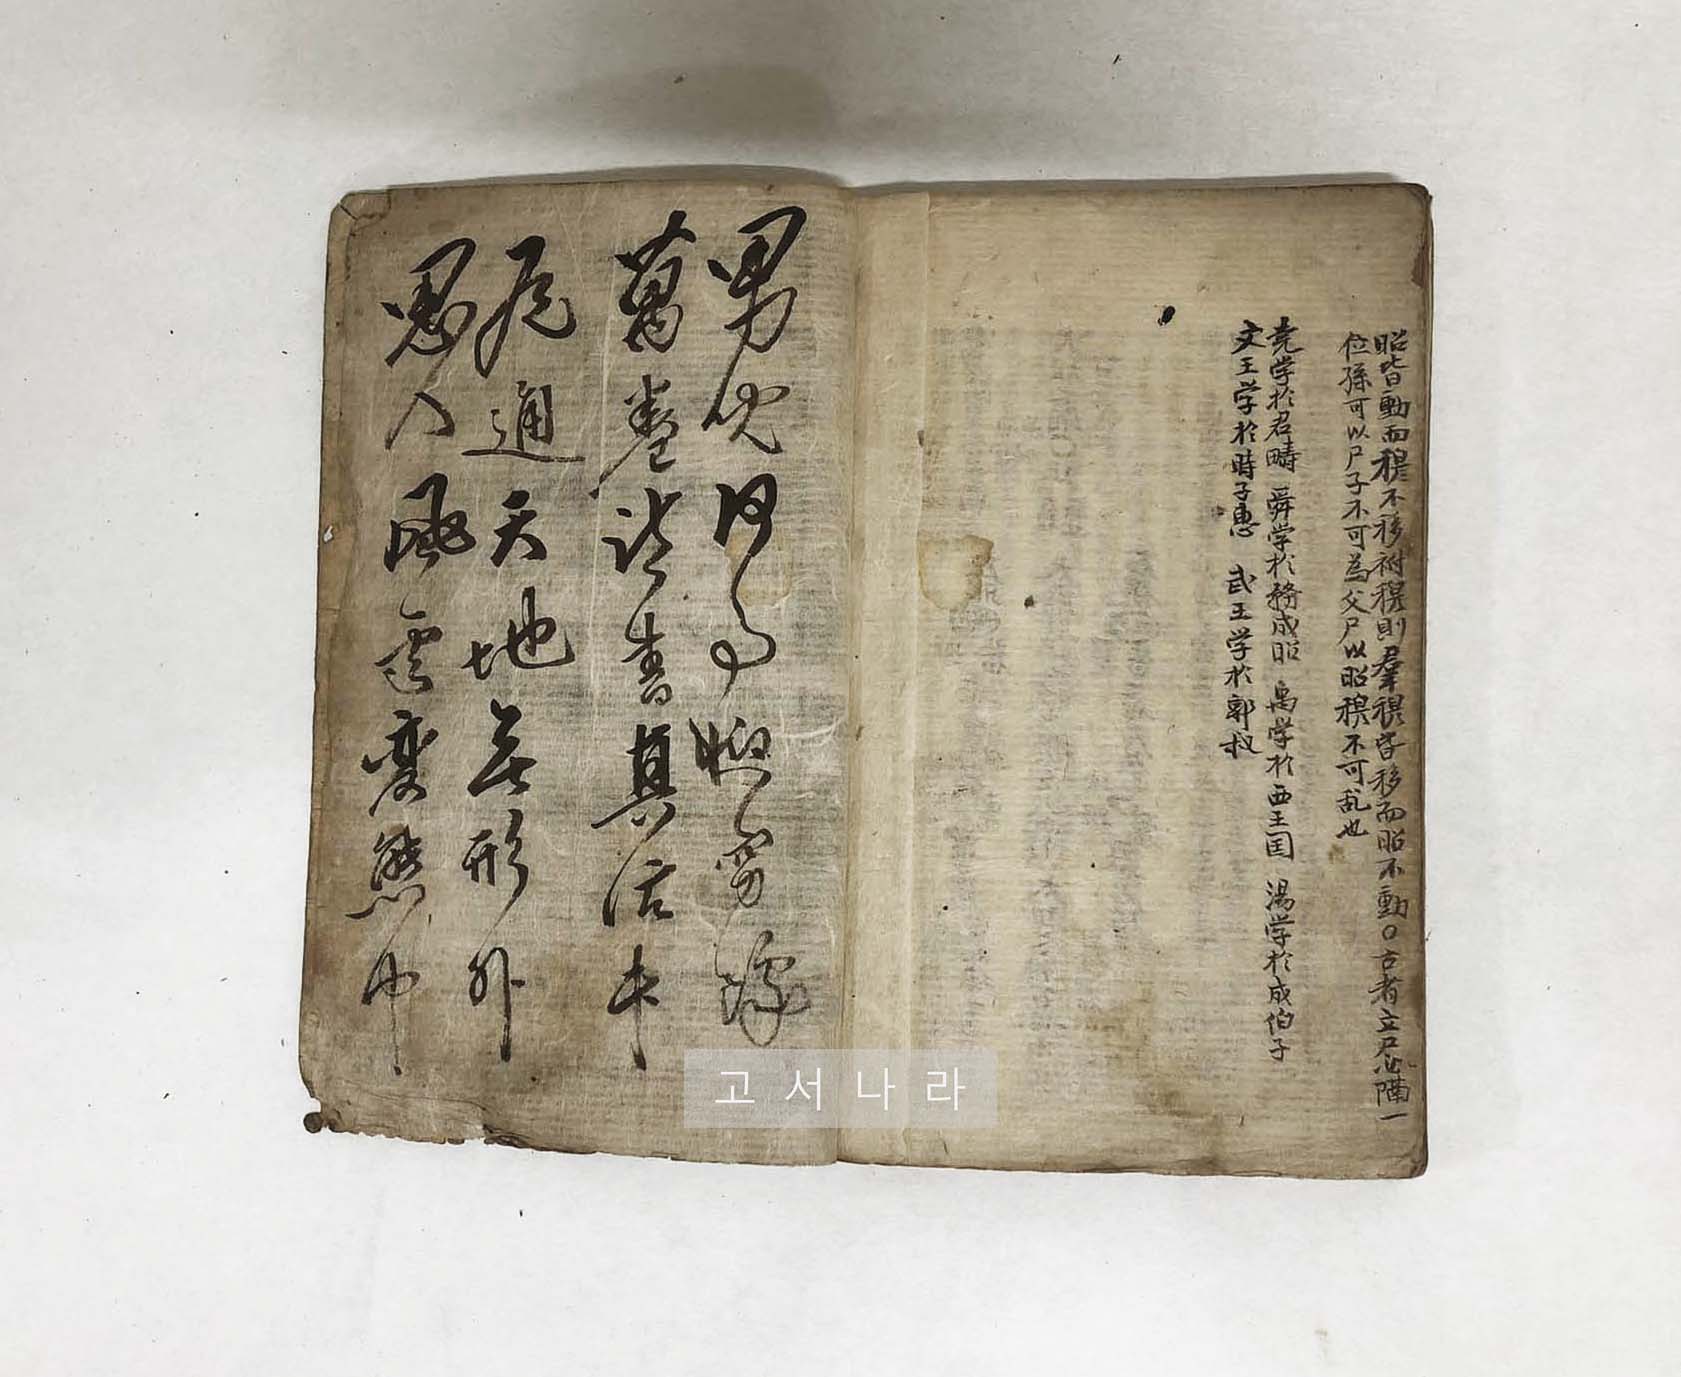 昭皆動而穆不移祔穆則羣穆皆移而昭不動○古者立尸必隔一
位孫可以尸子不可為父尸以昭穆不可乱也
堯学於君疇 舜学於務成昭 禹学於西王国 湯学於成伯子
文王学於時子思 武王学於郭叔
男兒
萬卷讀書真活
通天地無形外
思入風雲變態中
고서나라